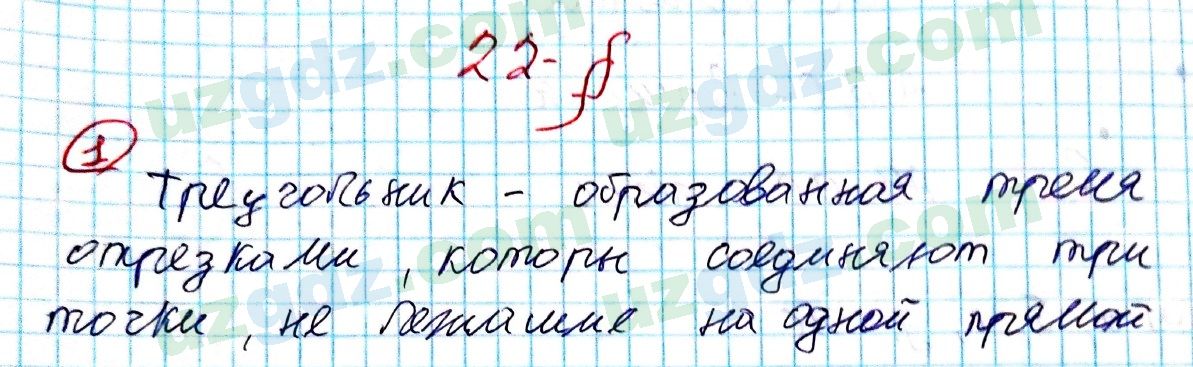 22-§
1
Треугольник - образованная тремя
отрезками, которы соединяют три
точки, не лежащие на одной прямой